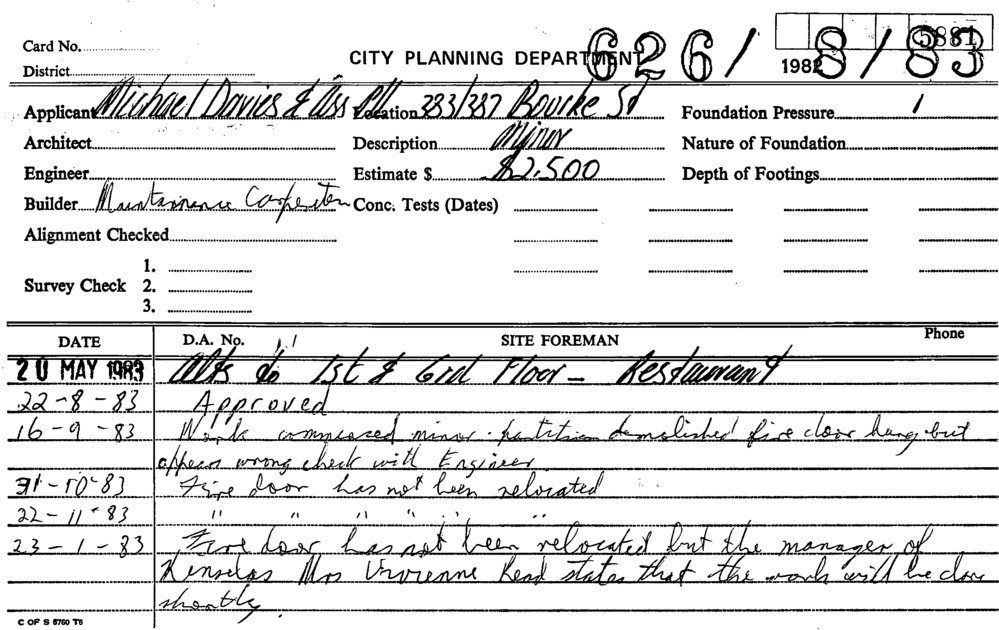 5881
Card No.
CITY PLANNING DEPARTMENT 626/8/83
District
1982
Applicant Michael Davies & Ass P/L Location 383/387 Bourke St Foundation Pressure
Architect Description Minor Nature of Foundation
Engineer Estimate $ $2,500 Depth of Footings
Builder Maintainance Carpenter Conc. Tests (Dates)
Alignment Checked
1.
Survey Check 2.
3.
DATE D.A. No. SITE FOREMAN Phone
20 MAY 1983 Alts to 1st & Grd Floor - Restaurant
22-8-83 Approved
16-9-83 Work commenced minor partition demolished fire door hung but
appears wrong check with Engineer
31-10-83 Fire door has not been relocated
22-11-83 " " " " " "
23-1-83 Fire door has not been relocated but the manager of
Kinselas Mrs Vivienne Read states that the work will be done
shortly.
C OF S 6760 T6